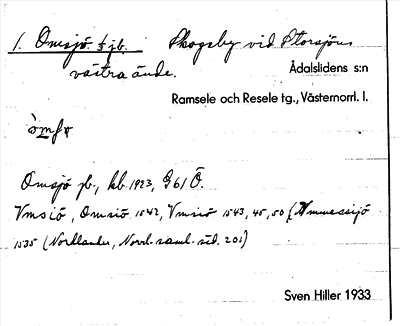 1. Omsjö ½ jb. Skogsby vid Storsjöns
västra ände.
Ådalslidens s:n
Ramsele och Resele tg., Västernorrl. l.
Omsjö jb., kb. 1923, G 61 Ö.
Vmsiö, Omsiö 1542, Vmsiö 1543, 45, 50 (Ummessijö
1535 (Norrlander, Norrl. saml. sid. 201)
Sven Hiller 1933